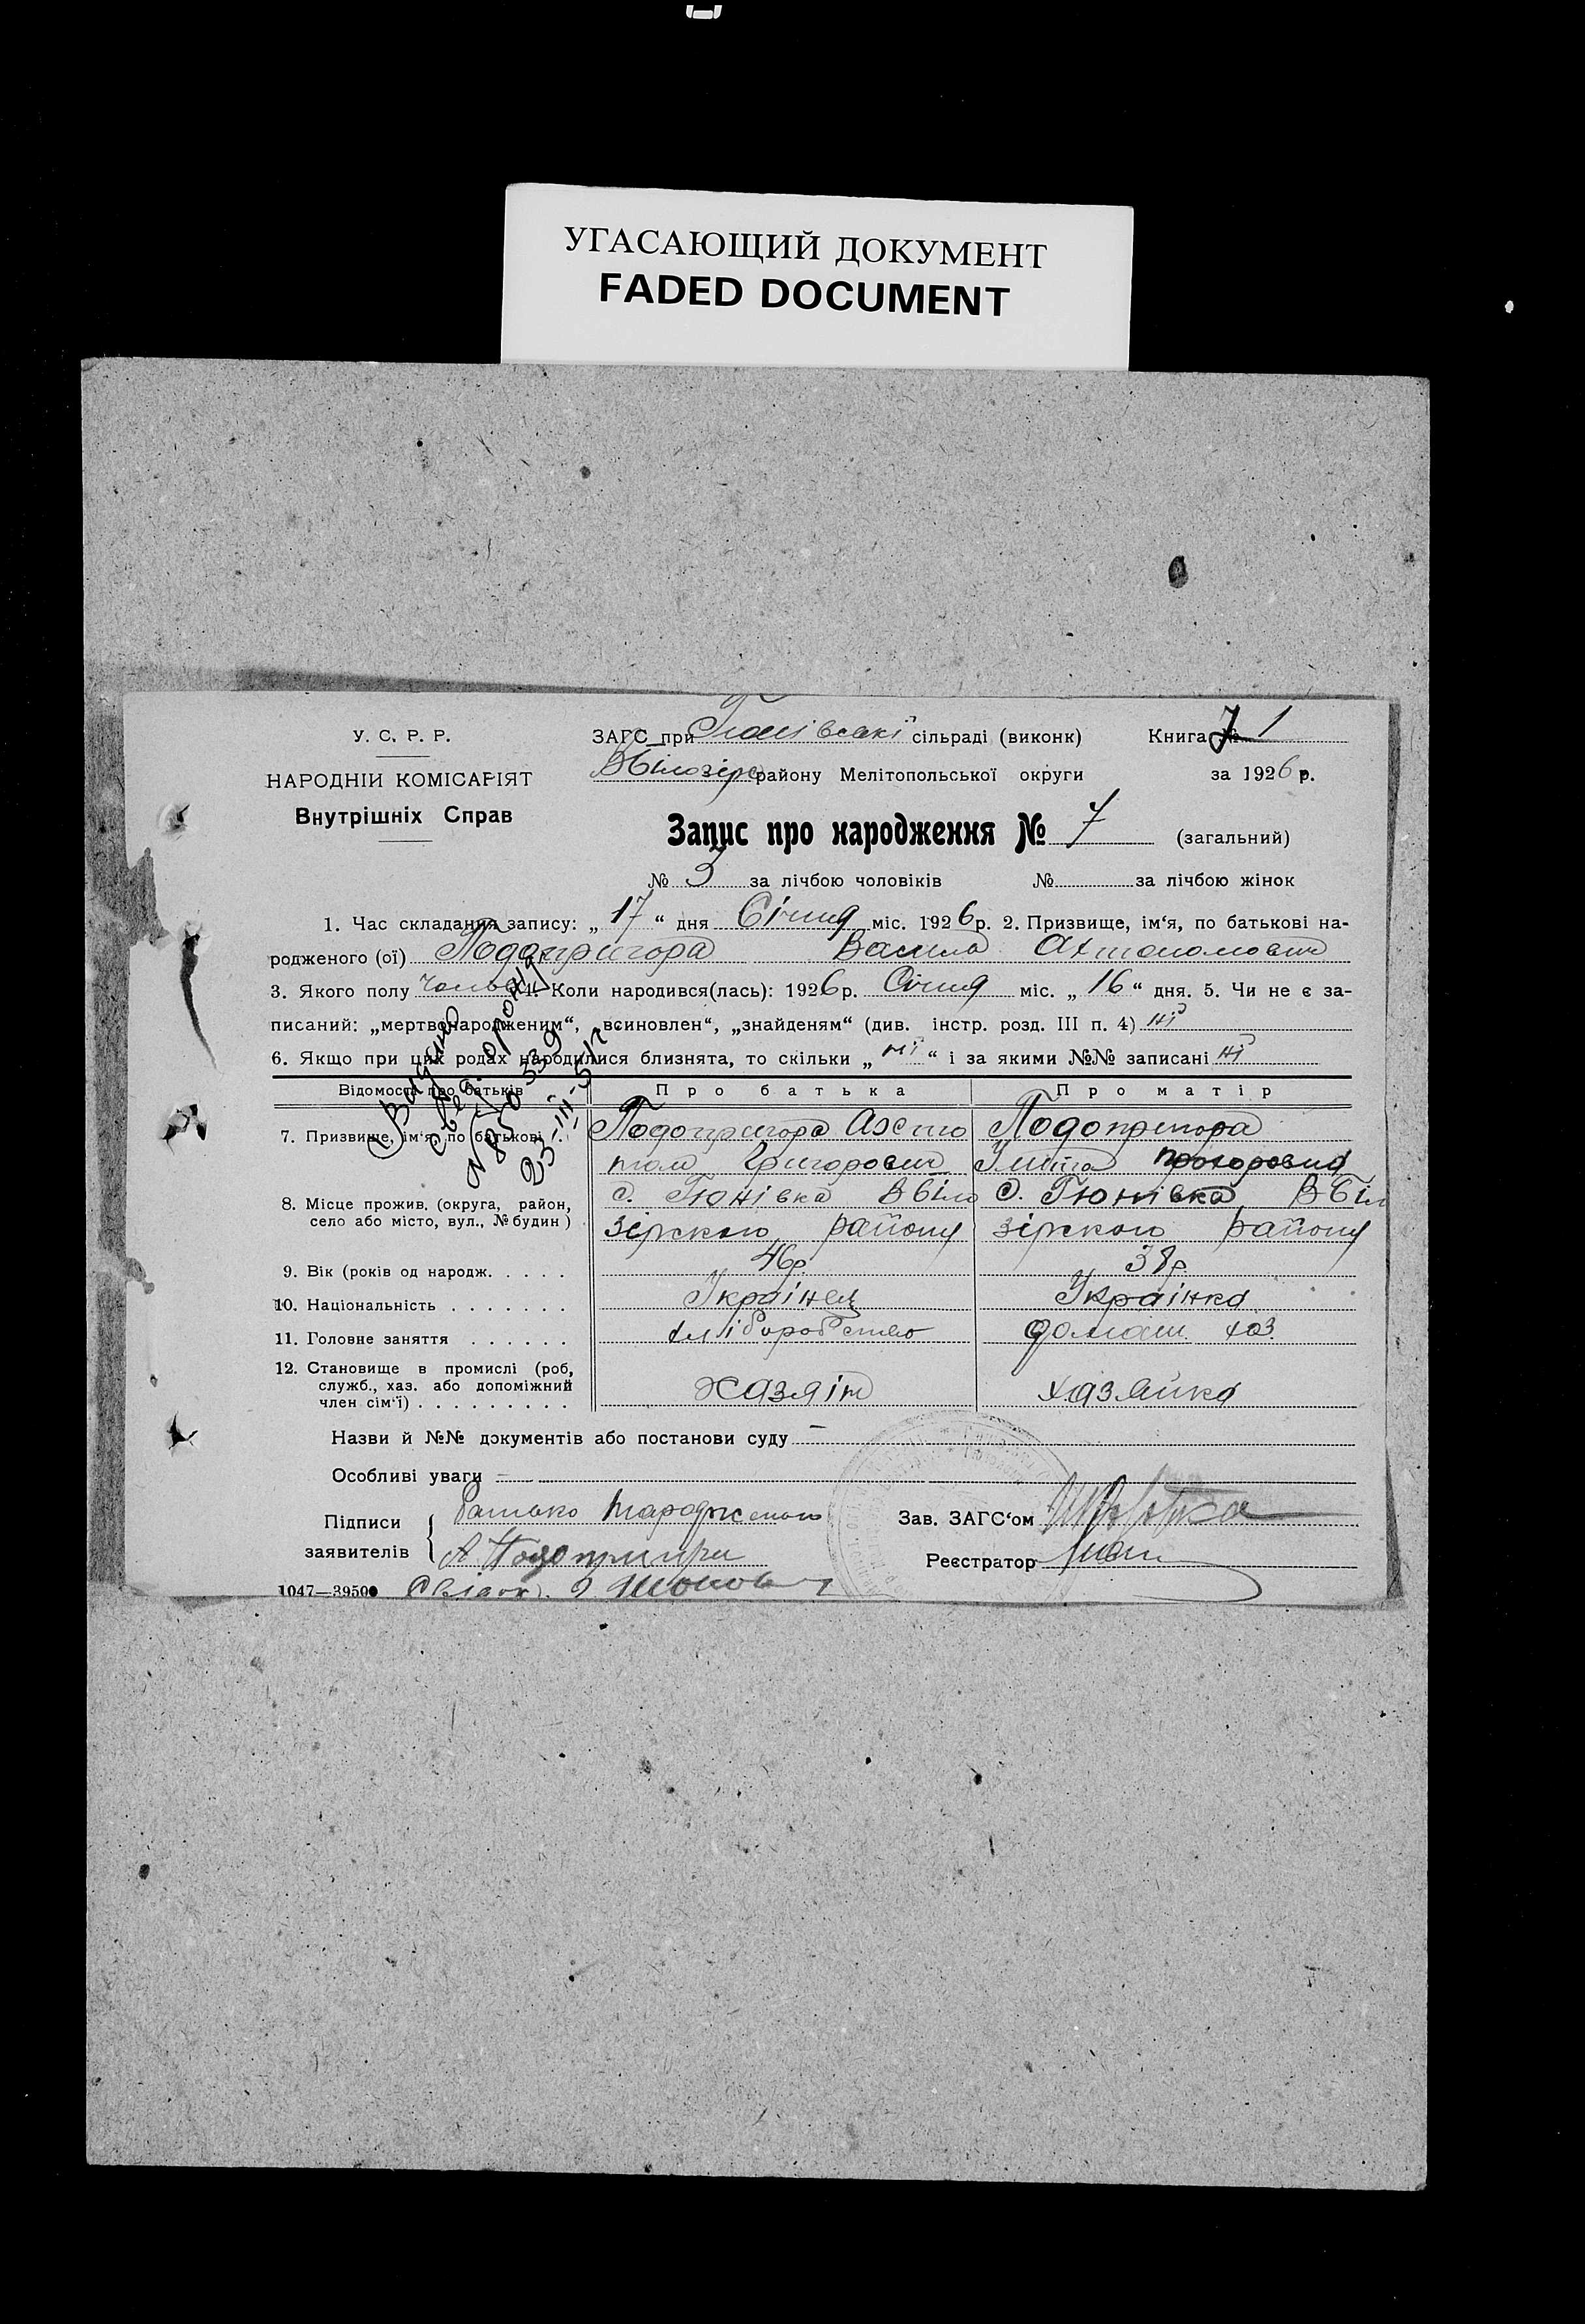 УГАСАЮЩИЙ ДОКУМЕНТ
FADED DOCUMENT
У. С. Р. Р.
НАРОДНІЙ КОМІСАРІЯТ
Внутрішніх Справ
ЗАГС при Гюнівскі сільраді (виконк)
Книга № 1
ВБілозірс району Мелітопольської округи
за 1926 р.
Запис про народження № 7 (загальний)
№ 3 за лічбою чоловіків № за лічбою жінок
1. Час складання запису: „ 17 “ дня Січня міс. 1926 р. 2. Призвище, ім‘я, по батькові на-
родженого (ої) Подопригора Василь Ахтономович
3. Якого полу Чолов 4. Коли народився(лась): 1926 р. Січня міс. „ 16 “ дня. 5. Чи не є за-
писаний: „мертвонародженим“, „всиновлен“, „знайденям“ (див. інстр. розд. III п. 4) ні
6. Якщо при цих родах народилися близнята, то скільки „ ні “ і за якими №№ записані ні
Відомості про батьків Про батька Про матір
7. Призвище, ім‘я, по батькові . Подопригора Ахтно Подопригора
ном Григорович Прохоровна
8. Місце прожив. (округа, район, с. Гюнівка ВБіло с. Гюнівка ВБіл
село або місто, вул., № будин) зірского району зірского району
9. Вік (років од народж. . . . . 46р. 38р.
10. Національність . . . . . . . Українец Українка
11. Головне заняття . . . . . . хліборобство домаш. хаз.
12. Становище в промислі (роб,
служб., хаз. або допоміжний
член сім‘ї) . . . . . . . . . хазяін хазяйка
Видано
339
25-III-51г
Назви й №№ документів або постанови суду —
Особливі уваги —
Підписи заявителів
батько народженого
А Подопригора
Зав. ЗАГС‘ом
Реєстратор
1047—39500